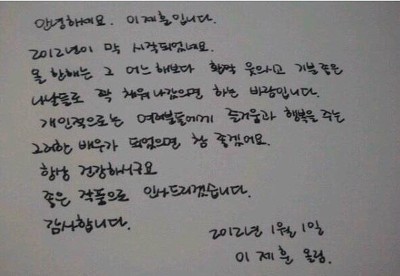 안녕하세요. 이제훈입니다.
2012년이 막 시작되었네요.
올 한해는 그 어느해보다 활짝 웃으시고 기분좋은
나날들로 꽉 채워나갔으면 하는 바람입니다.
개인적으로는 여러분들에게 즐거움과 행복을 주는
그러한 배우가 되었으면 참 좋겠어요.
항상 건강하시구요
좋은 작품으로 인사드리겠습니다.
감사합니다.
2012년 1월 1일
이제훈 올림.